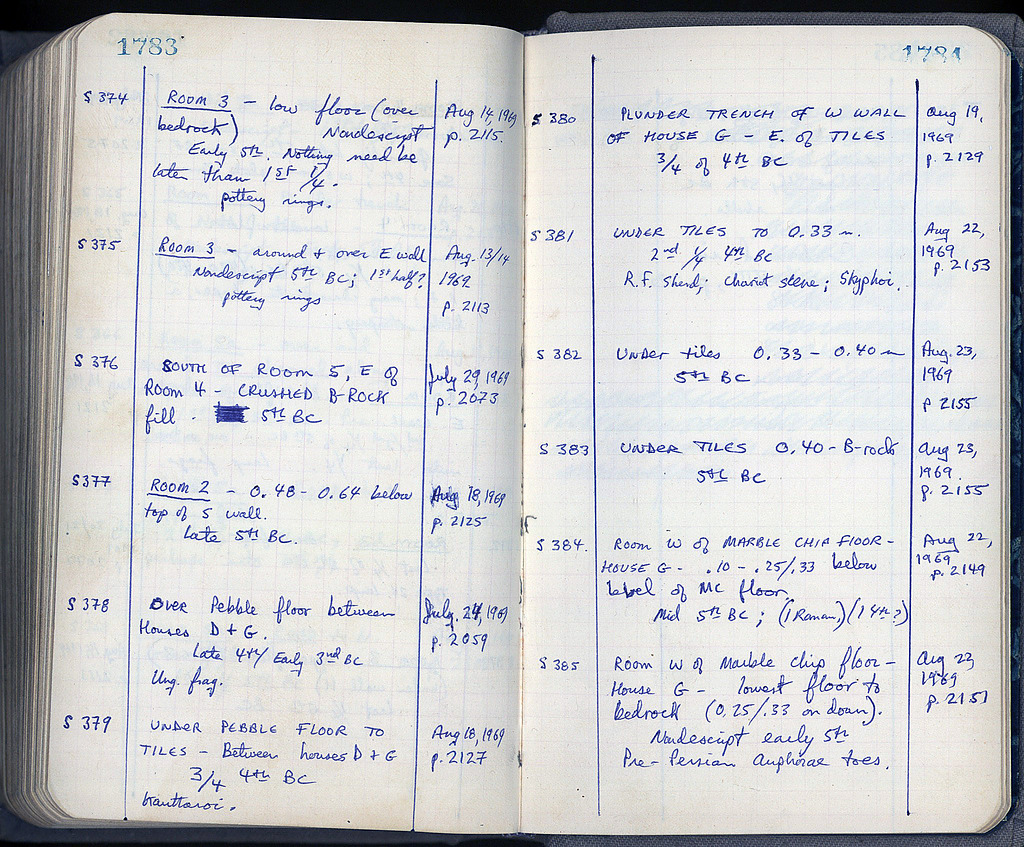 1783
S 374 ROOM 3 – low floor (over Aug 14, 1969
bedrock) Nondescript p. 2115.
Early 5th. Nothing need be
later than 1ST 1/4.
pottery rings.
S 375 Room 3 – around + over E wall Aug. 13/14
Nondescript 5th BC; 1st half? 1969
pottery rings p. 2113
S 376 SOUTH OF ROOM 5, E OF July 29, 1969
ROOM 4 – CRUSHED B-ROCK p. 2073
fill. 5th BC
S 377 ROOM 2 – 0.48 – 0.64 below Aug 18, 1969
top of S wall. p. 2125
Late 5th BC.
S 378 OVER Pebble floor between July. 24, 1969
Houses D + G. p. 2059
Late 4th/ Early 3rd BC
Ung. frag.
S 379 UNDER PEBBLE FLOOR TO Aug 18, 1969
TILES – Between houses D + G p. 2127
3/4 4th BC
kantharoi.
1784
S 380 PLUNDER TRENCH OF W WALL Aug 19,
OF HOUSE G – E. OF TILES 1969
3/4 of 4th BC p. 2129
S 381 UNDER TILES TO 0.33 m. Aug 22,
2nd 1/4 4th BC 1969
R.F. Sherd; chariot scene; Skyphoi. p. 2153
S 382 UNDER tiles 0.33 – 0.40 m Aug. 23,
5th BC 1969
p 2155
S 383 UNDER TILES 0.40 – B-rock Aug 23,
5th BC 1969.
p. 2155
S 384. ROOM W of MARBLE CHIP FLOOR – Aug 22,
HOUSE G – .10 – .25/.33 below 1969
level of MC floor. p. 2149
Mid 5th BC; (1 Roman,) (1 4th?)
S 385 ROOM W of Marble chip floor – Aug 22
House G – lowest floor to 1969
bedrock (0.25/.33 on down). p. 2151
Nondescript early 5th
Pre-Persian Amphorae toes.